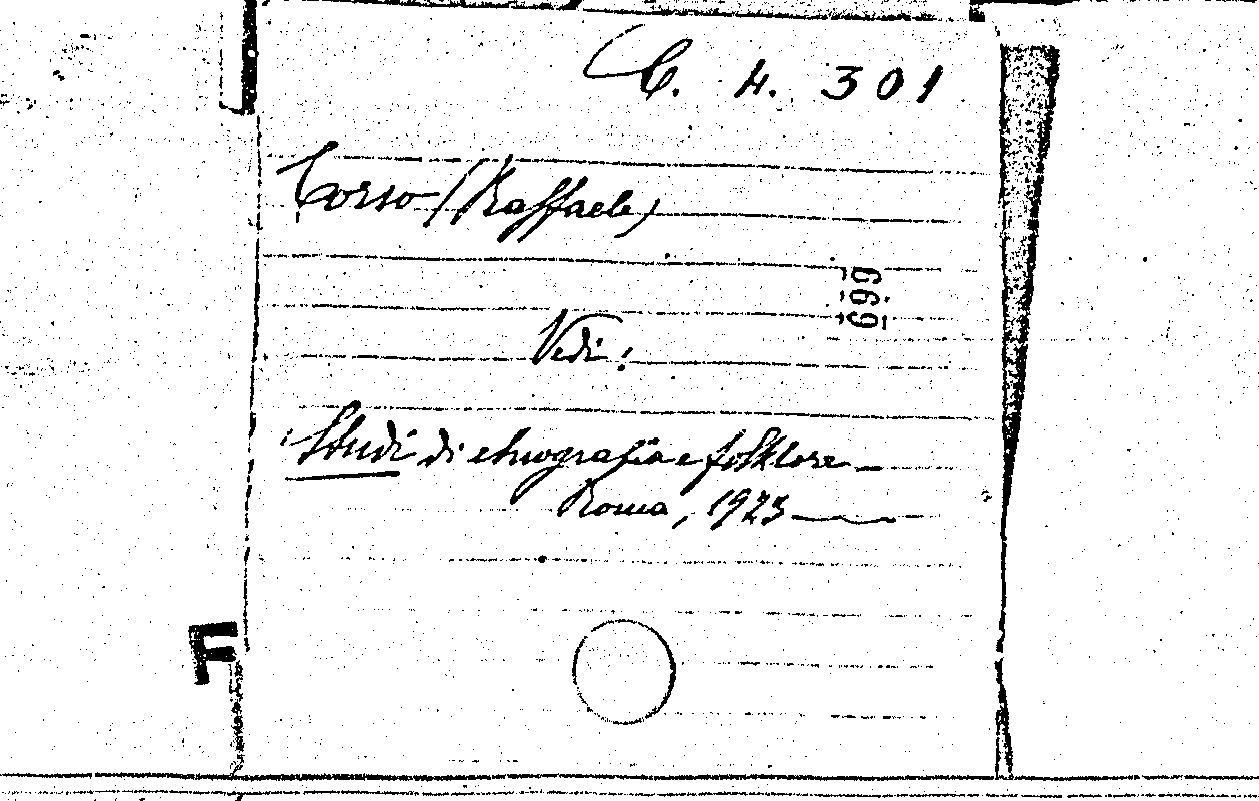 C. 4. 301
Corso (Raffaele)
699
Vedi:
Studi di etnografia e folklore
Roma, 1923
F